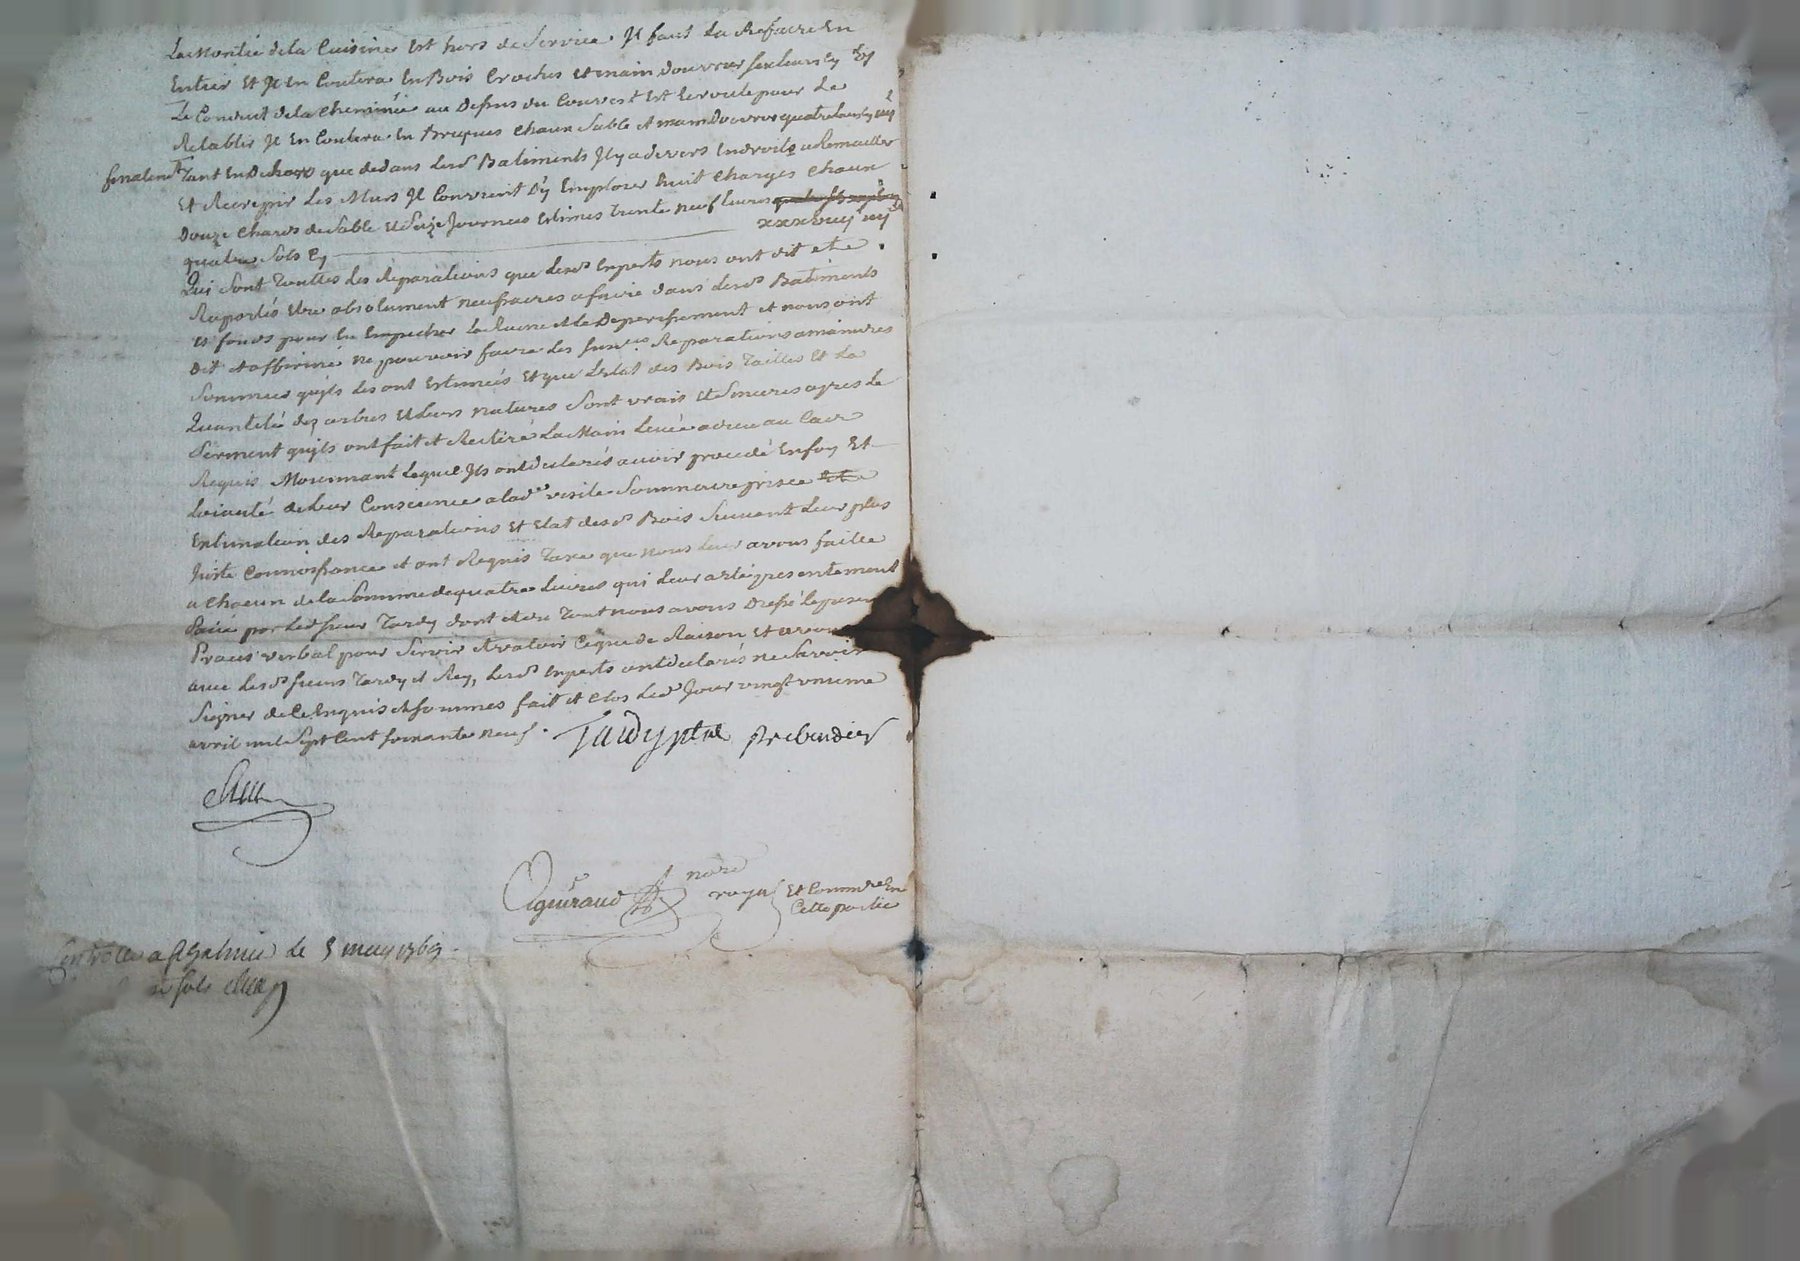 La Moitié de la Cuisine Est hors de Service Il faut La Refaire En
Entier Et Il En Coutera En Bois Croches Et main douvres six livres Cy
Le Conduit de la Cheminée au Dessus du Couvert Est Ecroulé pour Le
Retablir Il En Coutera En Briques Chaux Sable et main Douvres quatre livres Cy
finalemt Tant En Dehors que dedans lesd Batiments Il y a divers Endroits a Remailler
Et Recrepir Les Murs Il Convient D'y Emploier huit Charges Chaux
Douze Chars de Sable Et Seize Journees Estimes Trente neuf livres
quatre Sols Cy xxxviiij
Qui Sont Toutes les Réparations que lesd Experts nous ont dit et
Raportés Etre absolument necessaires a faire dans lesd Batiments
et fonds pour En Empecher la Ruine et le Deperissement et nous ont
dit et affirmé ne pouvoir faire les susd Reparations a moindres
Sommes quils les ont Estimées Et que l'Etat des Bois Tailles Et La
Quantité des arbres Et leurs natures Sont vrais Et Sinceres apres le
Serment quils ont fait et Reiteré La Main Levée a dieu au Cas
Requis Moiennant lequel Ils ont declarés avoir procedé En foy Et
Loiauté de leur Conscience a lad visite Sommaire prisee
Estimation des Reparations Et Etat desd Bois Suivant Leur plus
Juste Connoissance et ont Requis Taxe que nous leur avons faitte
a Chacun de la Somme de quatre Livres qui leur a été presentement
Paié par led sieur Tardy dont et du Tout nous avons Dressé le present
Proces verbal pour Servir et valoir Ce que de Raison Et avons
avec lesd sieurs Tardy et Rey, lesd Experts ont declarés ne Scavoir
Signer de Ce Enquis et Sommes fait et clos led Jour vingt unieme
avril mil Sept Cent soixante neuf. Tardy ptre Prebendier
Rey
guiraud nore
royal Et Commre En
Cette partie
Controllé a St Galmier le 5 may 1769
sols